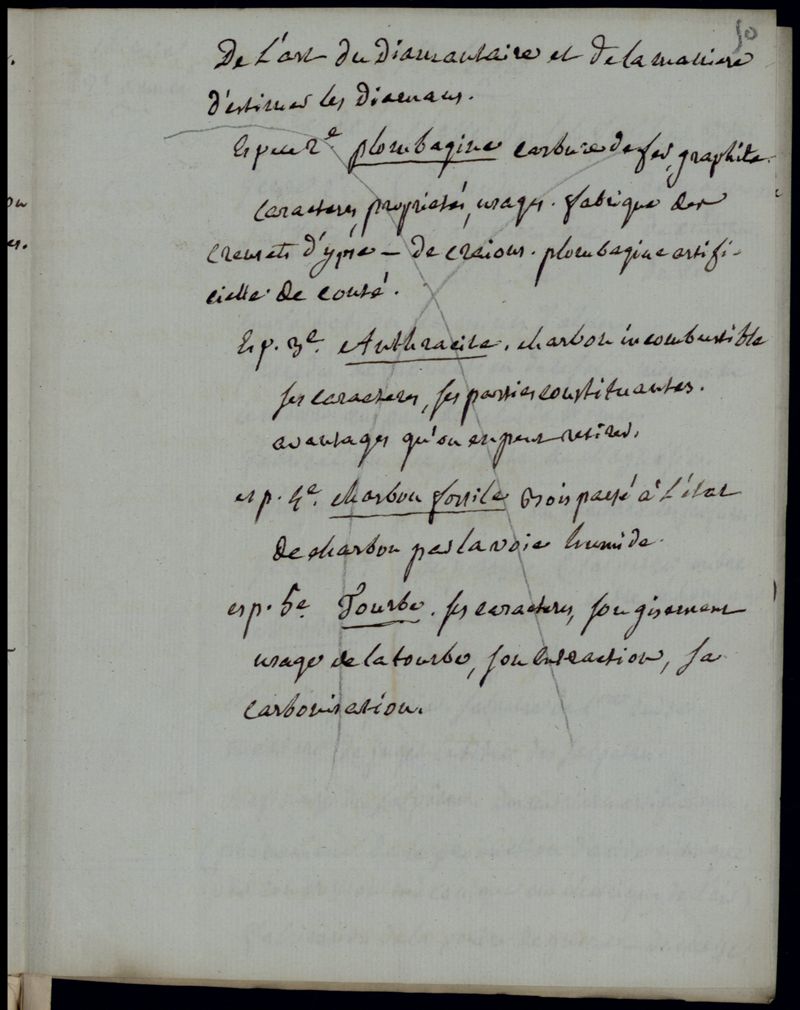 50
De L'art du Diamantaire et de la maniere
d'estimer les Diamans.
Espece 2e plombagine carbure de fer, graphite.
caracteres, proprietés, usages. fabrique des
creusets d'ypse — de craions. plombagine artifi-
cielle de conté.
Esp. 3e. Anthracite. charbon incombustible
ses caracteres, ses parties constituantes.
avantages qu'on en peut retirer.
esp. 4e. charbon fossile bois passé à L'état
de charbon par la voie humide.
esp. 5e Tourbe. ses caracteres, son gisement
usage de la tourbe, son extraction, sa
carbonisation.